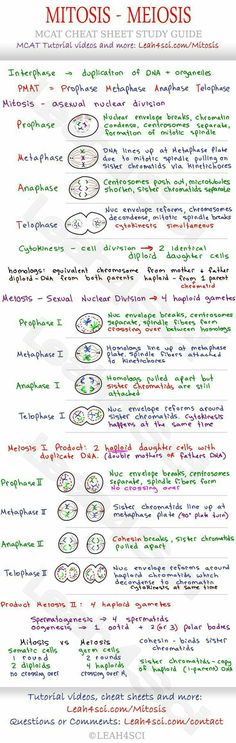 MITOSIS - MEIOSIS
MCAT CHEAT SHEET STUDY GUIDE
MCAT Tutorial videos and more: Leah4sci.com/Mitosis
Interphase → duplication of DNA + organelles
PMAT = Prophase Metaphase Anaphase Telophase
Mitosis - asexual nuclear division
Prophase
Nuclear envelope breaks, chromatin
condense, centrosomes separate,
formation of mitotic spindle
Metaphase
DNA lines up at Metaphase plate
due to mitotic spindle pulling on
sister chromatids via kinetichores
Anaphase
Centrosomes push out, microtubules
shorten, sister chromatids separate
Telophase
Nuc envelope reforms, chromosomes
decondense, mitotic spindle breaks
cytokinesis simultaneous
Cytokinesis - cell division → 2 identical
diploid daughter cells
homologs: equivalent chromosome from mother + father
diploid - DNA from both parents haploid - from 1 parent
chromatid
Meiosis - Sexual Nuclear Division → 4 haploid gametes
Prophase I
Nuc envelope breaks, centrosomes
separate, spindle fibers form
crossing over between homologs
Metaphase I
Homologs line up at metaphase
plate. Spindle fibers attached
to kinetichores
Anaphase I
Homologs pulled apart but
sister chromatids are still
attached
Telophase I
Nuc envelope reforms around
sister chromatids. Cytokinesis
happens at same time
Meiosis I Product: 2 haploid daughter cells with
duplicate DNA (double mothers or fathers DNA)
Prophase II
Nuc envelope breaks, centrosomes
separate, spindle fibers form
no crossing over
Metaphase II
Sister chromatids line up at
metaphase plate (90° plate turn)
Anaphase II
Cohesin breaks, sister chromatids
pulled apart
Telophase II
Nuc envelope reforms around
haploid chromatids which
decondense to chromatin
cytokinesis at same time
Product Meiosis II: 4 haploid gametes
Spermatogenesis → 4 spermatids
oogenesis → 1 ootid + 2 (or 3) polar bodies
Mitosis vs Meiosis
somatic cells germ cells
1 round 2 rounds
2 diploids 4 haploids
no crossing over crossing over
cohesin - binds sister
chromatids
Sister chromatids - copy
of haploid (1-parent) DNA
Tutorial videos, cheat sheets and more:
Leah4sci.com/Mitosis
Questions or Comments: Leah4sci.com/contact
©LEAH4SCI